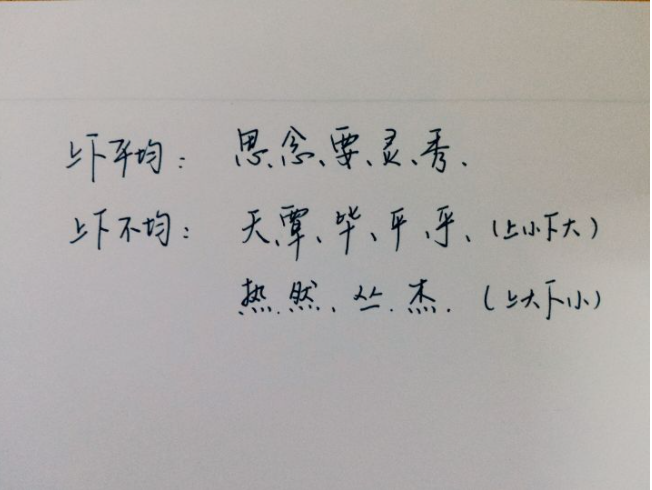 上下平均：思、念、要、灵、秀、
上下不均：天、覃、毕、平、乎、（上小下大）
热、然、丛、杰.（上大下小）